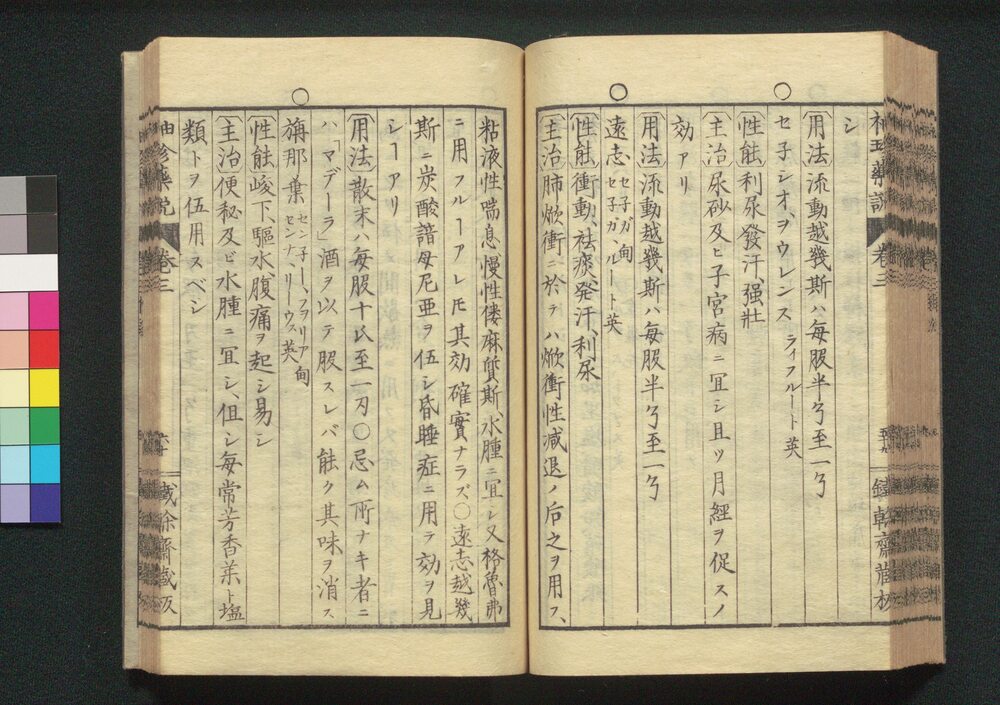 シ
用法 流動越幾斯ハ毎服半ゟ至一ゟ
○ セ子シオ、ヲウレンス ライフルート英
性能 利尿發汗、强壯
主治 尿砂及ヒ子宮病ニ冝シ且ツ月經ヲ促スノ
効アリ
用法 流動越幾斯ハ毎服半ゟ至一ゟ
○ 遠志 セ子ガ甸 セ子ガ、ルート英
性能 衝動、祛痰発汗、利尿
主治 肺焮衝ニ於テハ焮衝性減退ノ后之ヲ用フ、
粘液性喘息、慢性僂麻質斯、水腫ニ冝シ又格魯弗
ニ用フルヿアレ𪜈其効確實ナラズ○遠志越幾
斯ニ炭酸諳母尼亜ヲ伍シ昏睡症ニ用テ効ヲ見
シヿアリ
用法 散末ハ毎服十氏至一刃○忌ム所ナキ者ニ
ハ「マデーラ」酒ヲ以テ服スレバ能ク其味ヲ消ス
○ 旃那葉 セン子ー、フヲリア甸 センナ、リーウス英
性能 峻下、驅水、腹痛ヲ起シ易シ
主治 便秘及ビ水腫ニ冝シ、伹シ毎常芳香薬ト塩
類トヲ伍用スベシ
袖珍藥説 卷三